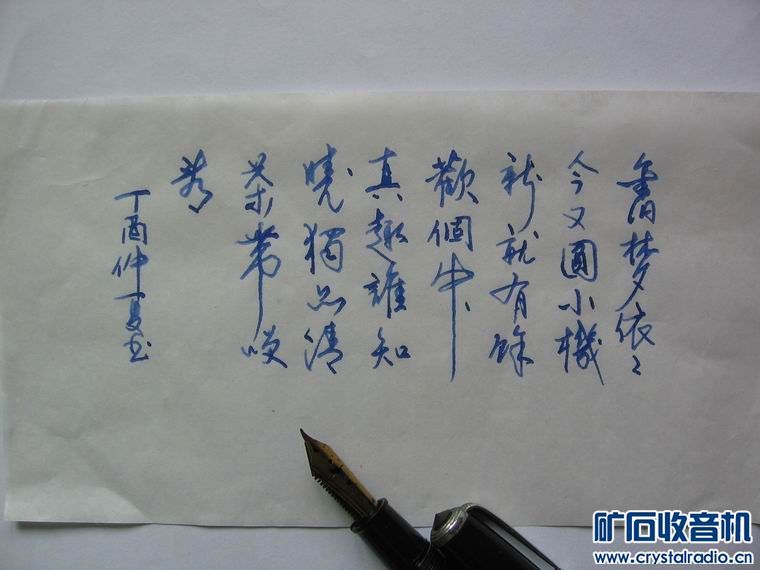 舊梦依〻
今又圓小機
新就有餘
歡個中
真趣誰知
曉獨品清
茶帶咲
看
丁酉仲夏书
矿石收音机
www.crystalradio.cn